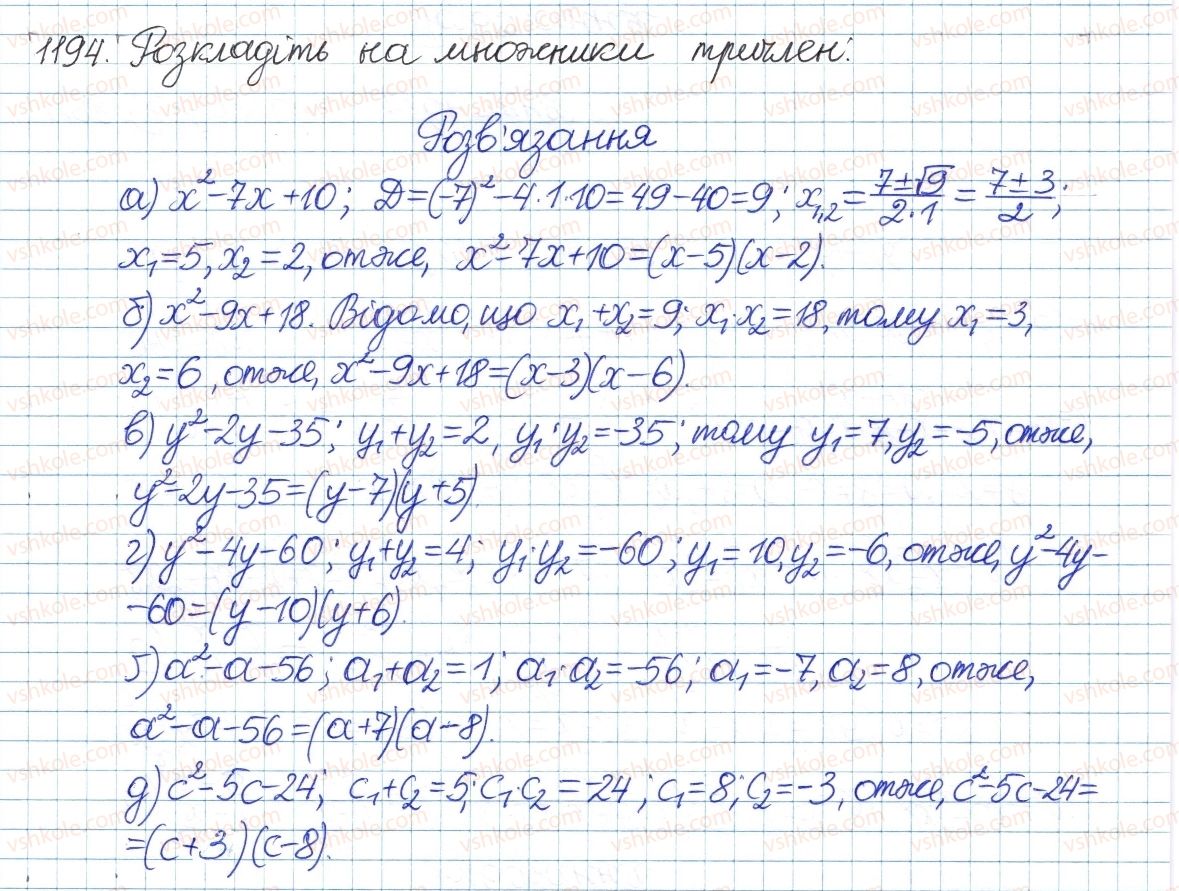 1194. Розкладіть на множники тричлен:
Розв'язання
а) x²-7x+10; Д=(-7)²-4·1·10=49-40=9; x₁,₂=(7±√9)/(2·1)=(7±3)/2;
x₁=5, x₂=2, отже, x²-7x+10=(x-5)(x-2).
б) x²-9x+18. Відомо, що x₁+x₂=9; x₁·x₂=18, тому x₁=3,
x₂=6, отже, x²-9x+18=(x-3)(x-6).
в) y²-2y-35; y₁+y₂=2, y₁·y₂=-35; тому y₁=7, y₂=-5, отже,
y²-2y-35=(y-7)(y+5).
г) y²-4y-60; y₁+y₂=4; y₁·y₂=-60; y₁=10, y₂=-6, отже, y²-4y-
-60=(y-10)(y+6).
ґ) a²-a-56; a₁+a₂=1; a₁·a₂=-56; a₁=-7, a₂=8, отже,
a²-a-56=(a+7)(a-8).
д) c²-5c-24; c₁+c₂=5; c₁·c₂=-24; c₁=8; c₂=-3, отже, c²-5c-24=
=(c+3)(c-8).
vshkole.com